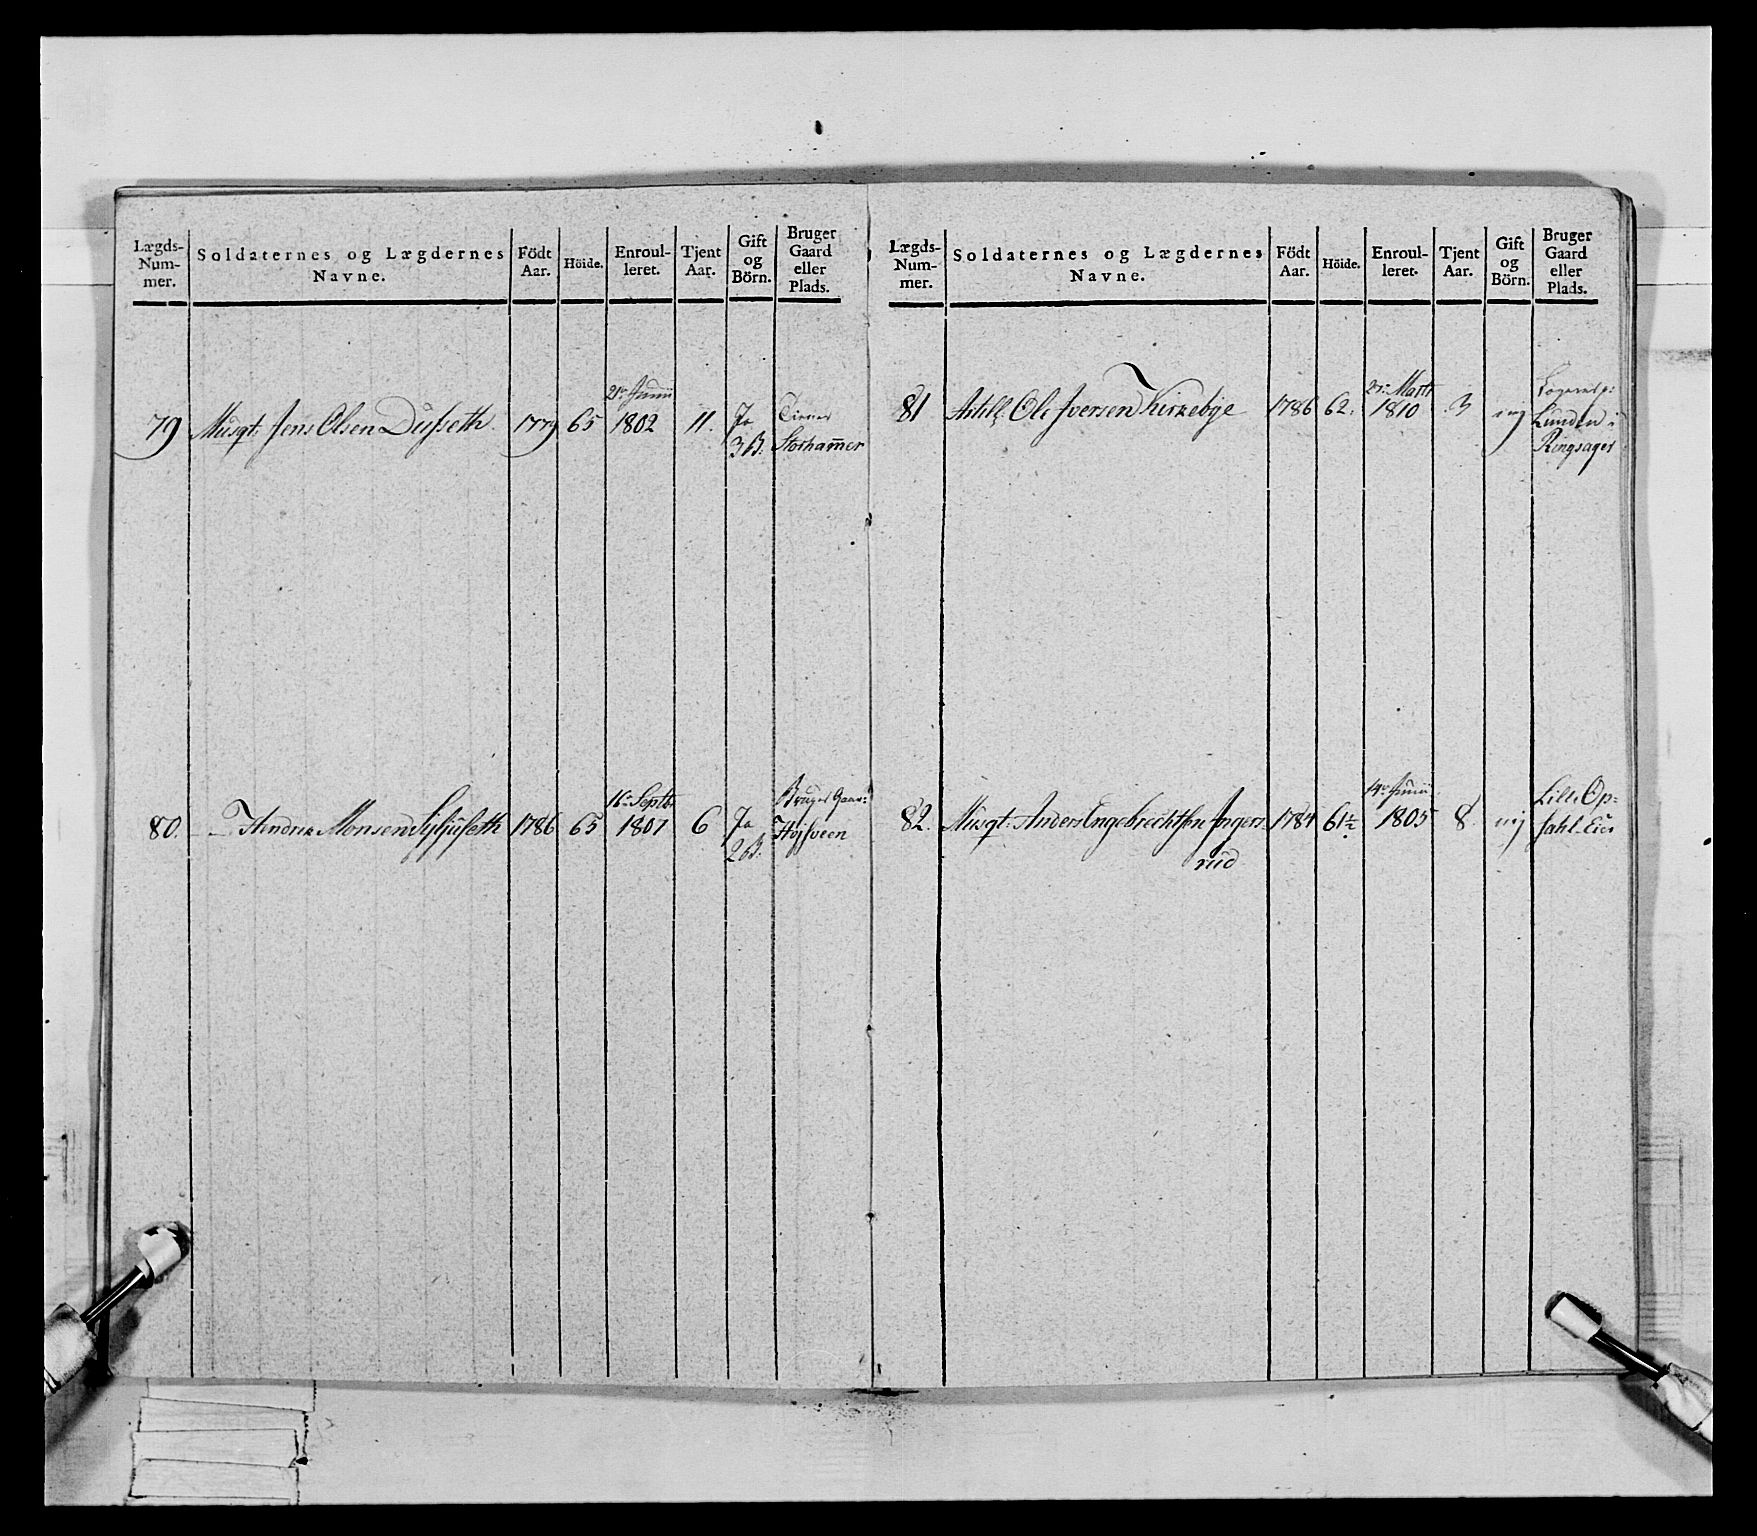 Lægds-
Num-
mer.
Soldaternes og Lægdernes
Navne.
Födt
Aar.
Höide.
Enroul-
leret.
Tjent
Aar.
Gift
og
Börn.
Bruger
Gaard
eller
Plads.
79 Musqt: Jens Olsen Dufseth. 1779 65 21de Junii 1802 11. Ja
3 B. Tiener
Storhamer
80. — Hendrik Monsen 1786 65 16de Septbr 1807 6 Ja
2 B. Bruger Gaar:
Højsveen
Lægds-
Num-
mer.
Soldaternes og Lægdernes
Navne.
Födt
Aar.
Höide.
Enroul-
leret.
Tjent
Aar.
Gift
og
Börn.
Bruger
Gaard
eller
Plads.
81 Artill. Ole Iversen Kirkebye 1786 62. Marti 1810 3 nej
Lunden i
Ringsager
82. Musqt: Anders Engebrechtsen Inger- 1784 61½ 14de Junii 1805 8. nej Lille Op-
rud sahl-Eier